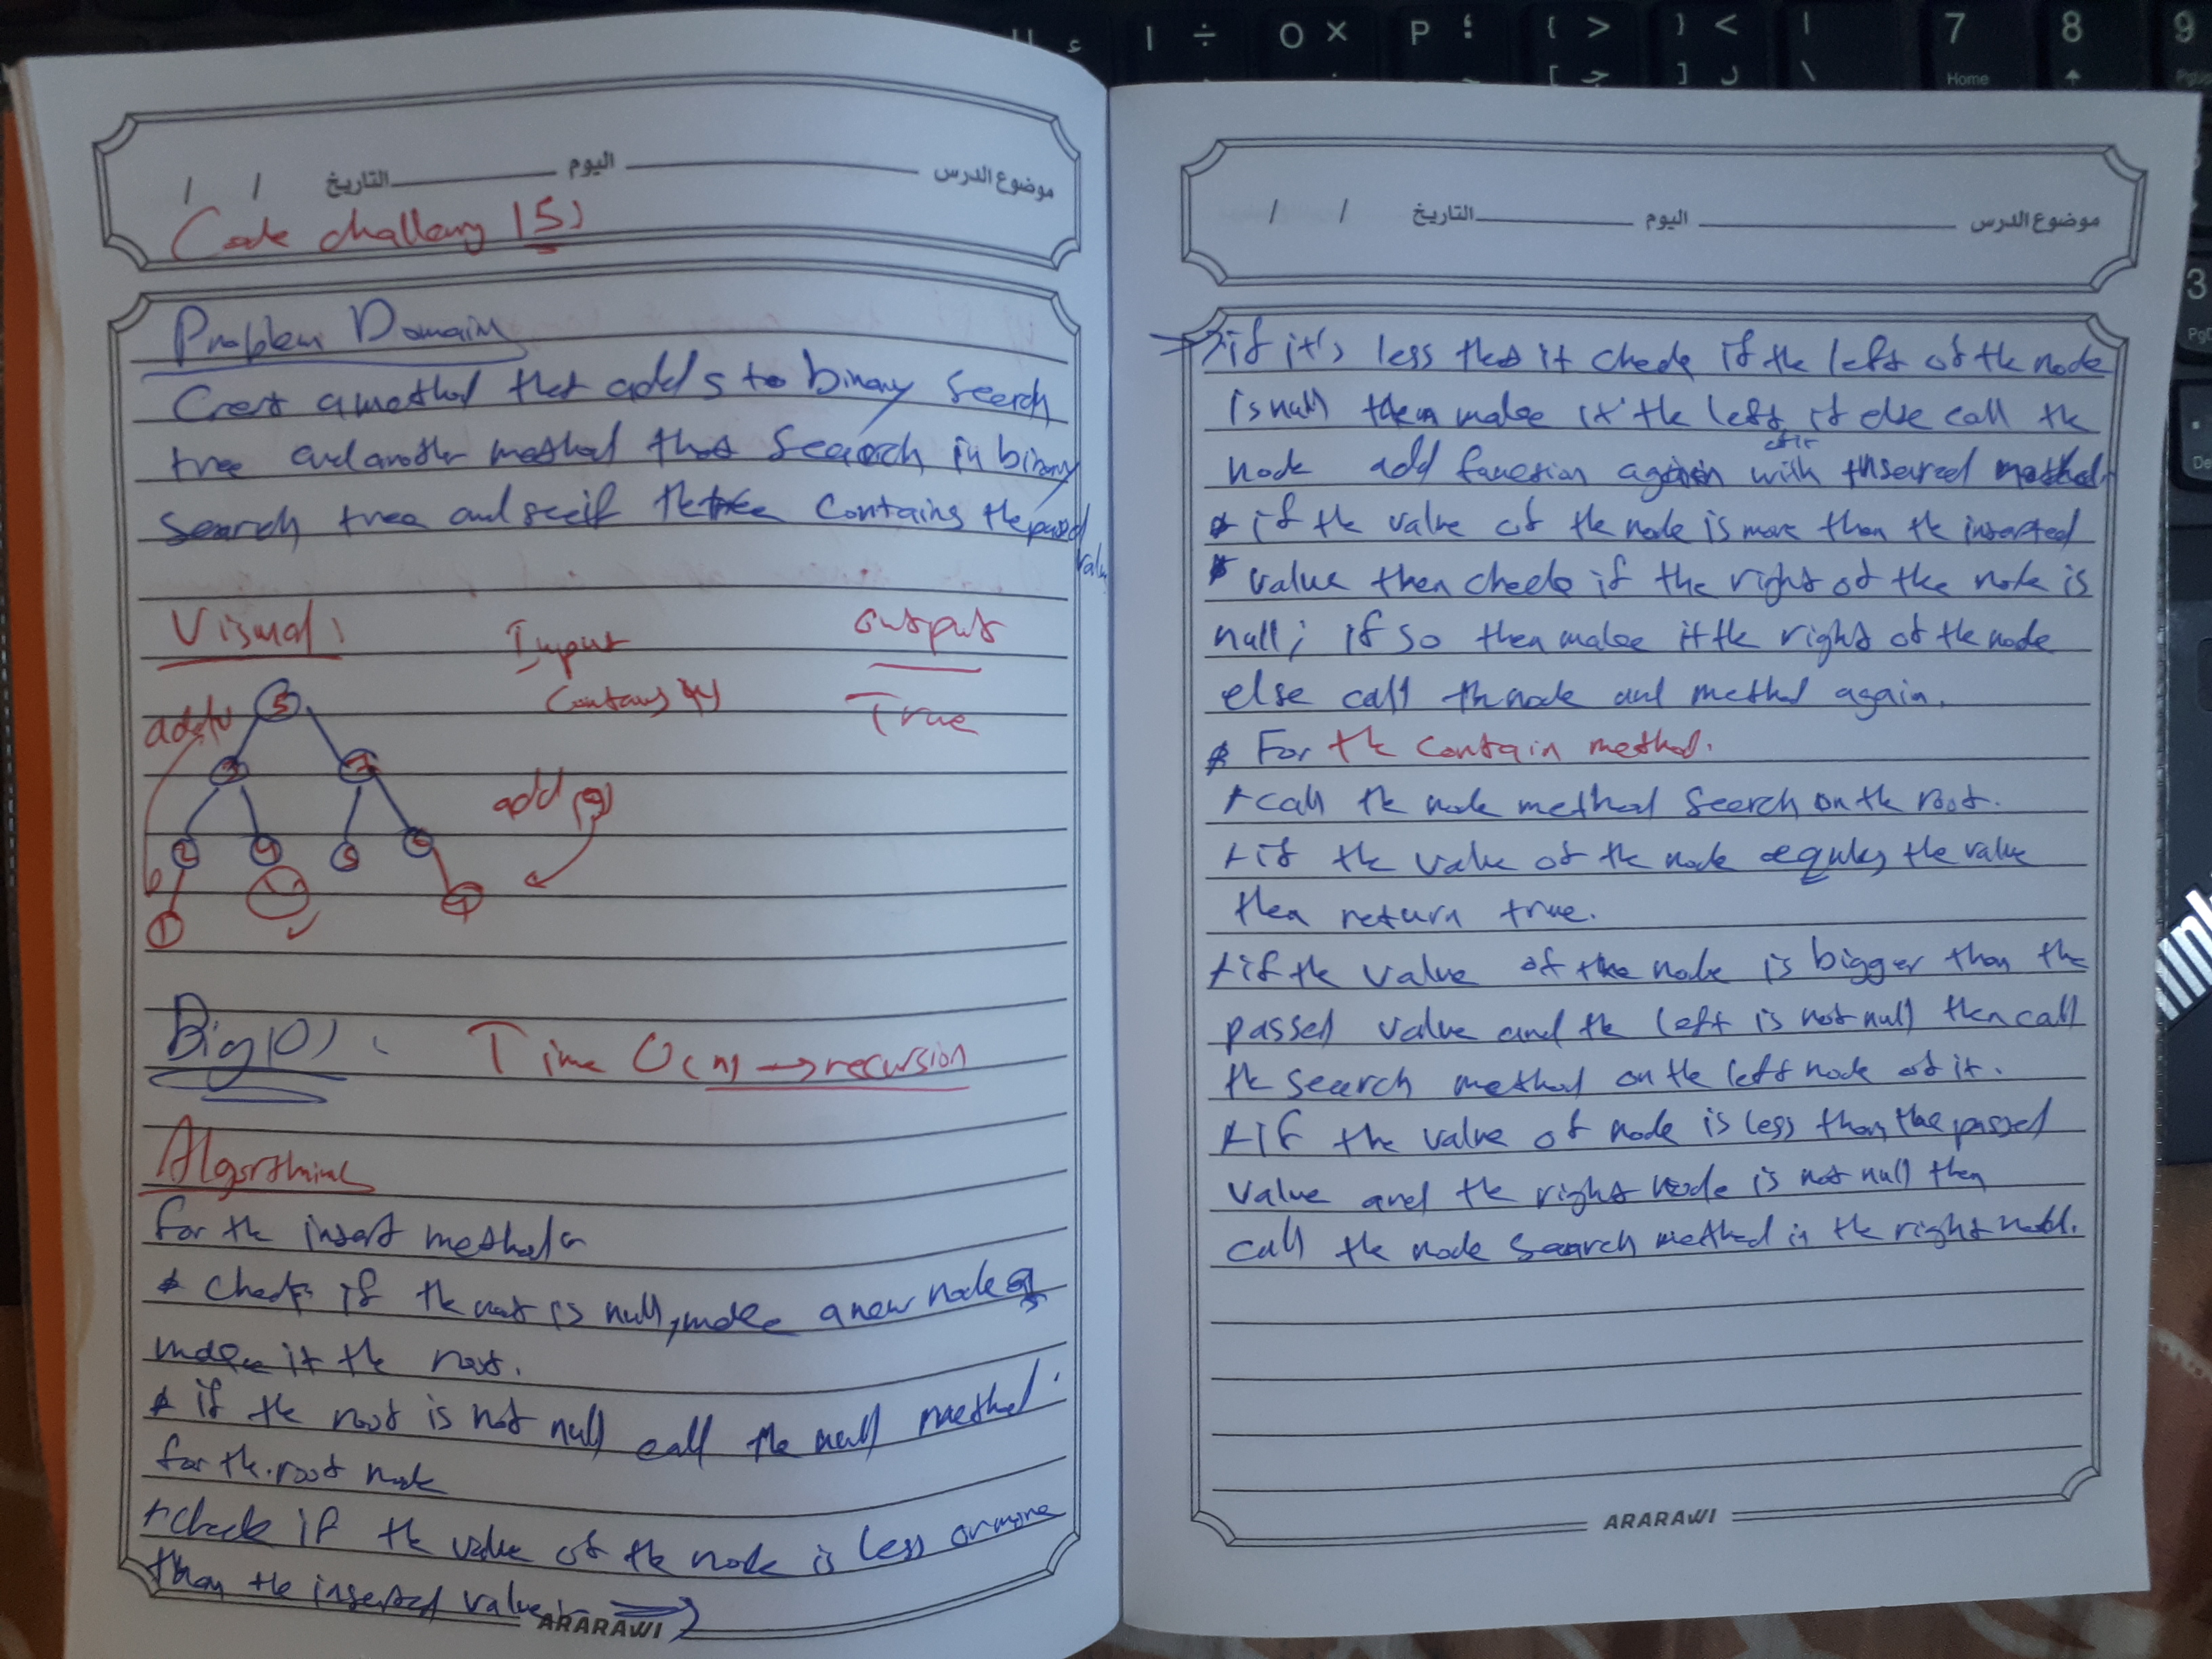 موضوع الدرس اليوم التاريخ / /
Code challeng (5)
Problem Domain
Creat a method that adds to binary Search
tree and another method that Search in binary
search tree and see if the tree contains the passed
value
Visual: Input output
Contains (4) True
5
add(1)
3 7
add (9)
2 4 5 8
1 9
Big(O): Time O(n) → recursion
Algorathiml
for the insert method
* Check if the root is null, make a new node &
make it the root.
* if the root is not null call the null method
for the root node
+ check if the value of the node is less or more
than the inserted value →
ARARAWI
موضوع الدرس اليوم التاريخ / /
→ if it's less that it check if the left of the node
is null then make it the left, if else call the
node add function again with method
* if the value of the node is more than the inserted
* value then check if the right of the node is
null; if so then make it the right of the node
else call the node and method again.
* For the contain method.
+ call the node method Search on the root.
+ if the value of the node equles the value
then return true.
+ if the value of the node is bigger than the
passed value and the left is not null then call
the search method on the left node of it.
+ if the value of node is less than the passed
value and the right node is not null then
call the node Search method in the right
ARARAWI
7 8 9
Home
P
O
3